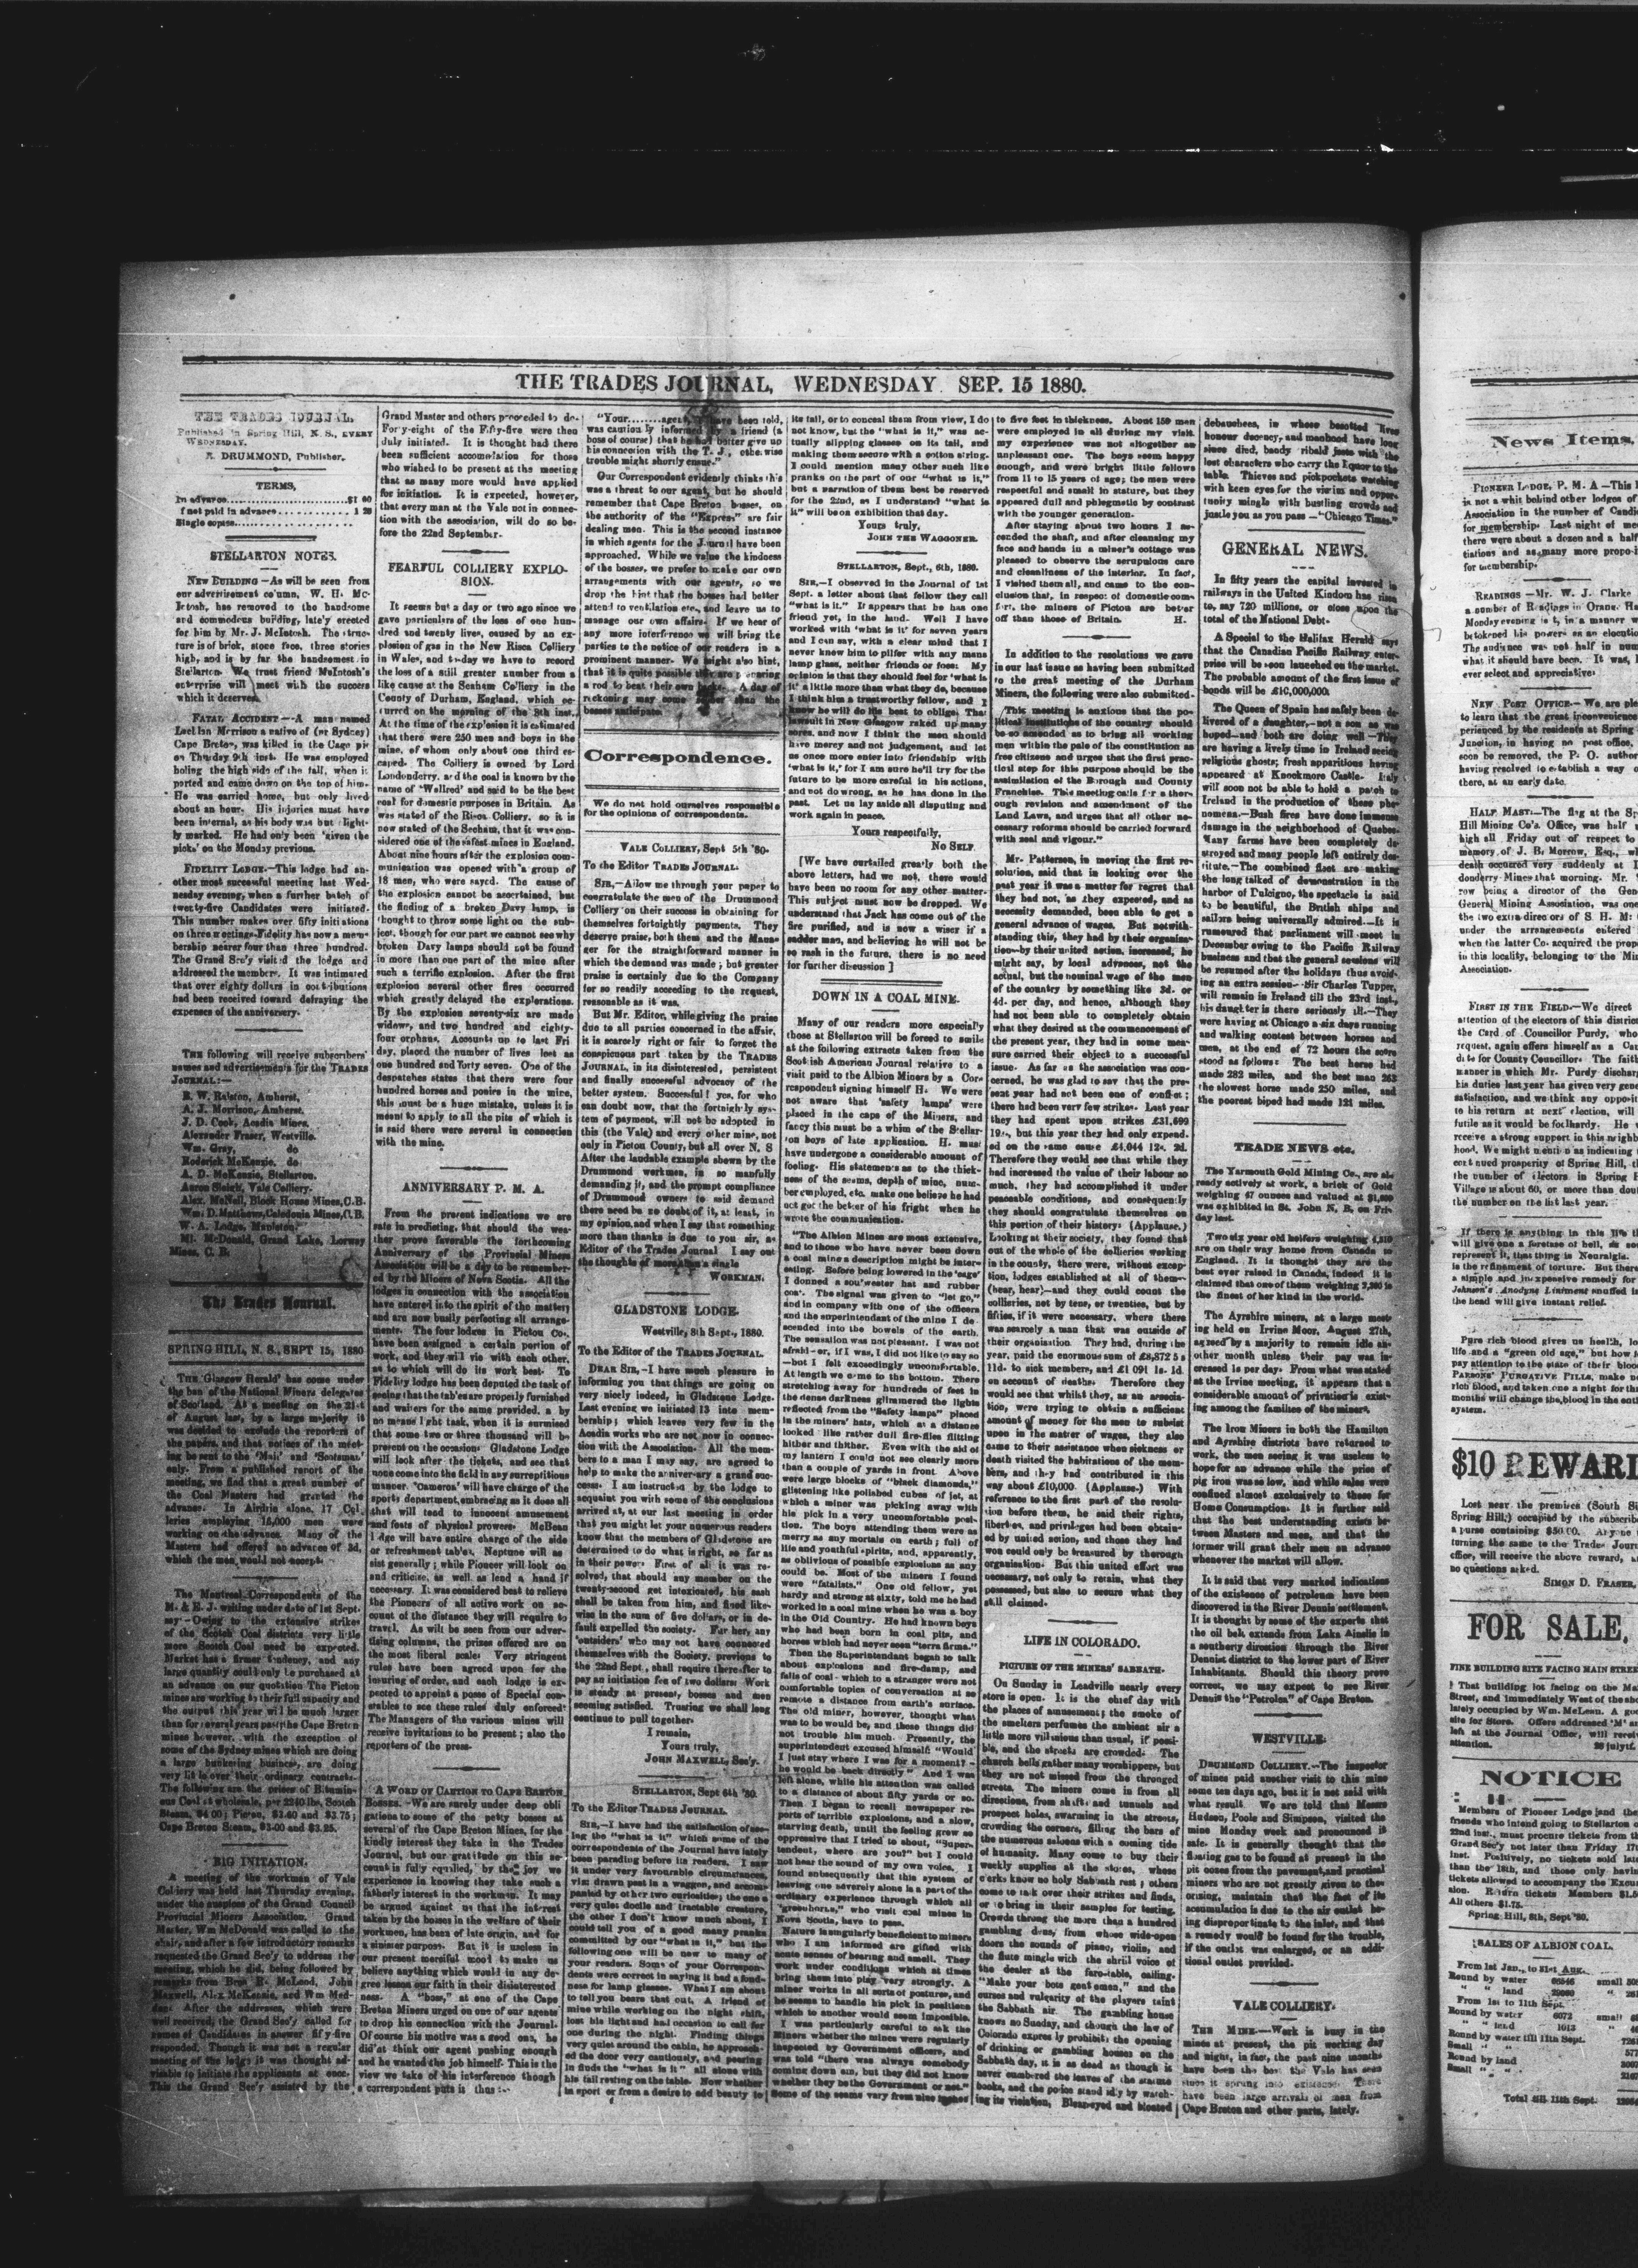 THE TRADES JOURNAL, WEDNESDAY SEP. 15 1880.
THE TRADES JOURNAL,
Published in Spring Hill, N. S., EVERY
WEDNESDAY.
R. DRUMMOND, Publisher.
TERMS,
In advance $1 00
f not paid in advance 1 20
Single copies
STELLARTON NOTES.
NEW BUILDING —As will be seen from
our advertisement co'umn, W. H. Mc-
Intosh, has removed to the handsome
and commodous building, late'y erected
for him by Mr. J. McIntosh. The struc-
ture is of brick, stone face, three stories
high, and is by far the handsomest in
Stellarton. We trust friend McIntosh's
enterprise will meet with the success
which it deserves.
FATAL ACCIDENT —A man named
Lachlan Morrison a native of (nr Sydney)
Cape Breton, was killed in the Cage pit
on Thursday 9th inst. He was employed
holing the high side of the fall, when it
parted and came down on the top of him.
He was carried home, but only lived
about an hour. His injuries must have
been internal, as his body was but light-
ly marked. He had only been 'given the
picks' on the Monday previous.
FIDELITY LODGE—This lodge had an-
other most successful meeting last Wed-
nesday evening, when a further batch of
twenty-five Candidates were initiated.
This number makes over fifty initiations
on three meetings. Fidelity has now a mem-
bership nearer four than three hundred.
The Grand Sec'y visited the lodge and
addressed the members. It was intimated
that over eighty dollars in contributions
had been received toward defraying the
expenses of the anniversary.
THE following will receive subscribers'
names and advertisements for the TRADES
JOURNAL:—
R. W. Ralston, Amherst,
A. J. Morrison, Amherst.
J. D. Cook, Acadia Mines.
Alexander Fraser, Westville.
Wm. Gray, do
Roderick McKenzie, do
A. D. McKenzie, Stellarton.
Aaron Sleigh, Vale Colliery.
Alex. McNeil, Block House Mines, C.B.
Wm. D. Matthews, Caledonia Mines, C.B.
W. A. Lodge, Mapleton.
Ml. McDonald, Grand Lake, Lorway
Mines, C. B.
The Trades Journal.
SPRING HILL, N. S., SEPT 15, 1880
THE 'Glasgow Herald' has come under
the ban of the National Miners delegates
of Scotland. At a meeting on the 21st
of August last, by a large majority it
was decided to exclude the reporters of
the papers, and that notices of the meet-
ing be sent to the 'Mail' and 'Scotsman'
only. From a published report of the
meeting, we find that a great number of
the Coal Masters had granted the
advance. In Airdrie alone, 17 Col-
leries employing 15,000 men were
working on the advance. Many of the
Masters had offered an advance of 3d,
which the men would not accept.
The Montreal Correspondents of the
M. & E. J. writing under date of 1st Sept.
say—Owing to the extensive strikes
of the Scotch Coal districts very little
more Scotch Coal need be expected.
Market has a firmer tendency, and any
large quantity could only be purchased at
an advance on our quotation The Picton
mines are working to their full capacity and
the output this year will be much larger
than for several years past, the Cape Breton
mines however, with the exception of
some of the Sydney mines which are doing
a large bunkering business, are doing
very little over their ordinary contracts.
The following are the prices of Bitumin-
ous Coal at wholesale, per 2240 lbs. Scotch
Steam, $4 00; Picton, $3.60 and $3.75;
Cape Breton Steam, $3.00 and $3.25.
BIG INITATION.
A meeting of the workman of Vale
Colliery was held last Thursday evening,
under the auspices of the Grand Council
Provincial Miners Association. Grand
Master, Wm McDonald was called to the
chair, and after a few introductory remarks
requested the Grand Sec'y to address the
meeting, which he did, being followed by
remarks from Bros R. McLeod, John
Maxwell, Alex McKenzie, and Wm Med-
After the addresses, which were
well received, the Grand Sec'y called for
names of Candidates in answer fifty-five
responded. Though it was not a regular
meeting of the lodge it was thought ad-
visable to initiate the applicants at once.
This the Grand Sec'y assisted by the
Grand Master and others proceeded to do.
Forty-eight of the Fifty-five were then
duly initiated. It is thought had there
been sufficient accomodation for those
who wished to be present at the meeting
that as many more would have applied
for initiation. It is expected, however,
that every man at the Vale not in connec-
tion with the association, will do so be-
fore the 22nd September.
FEARFUL COLLIERY EXPLO-
SION.
It seems but a day or two ago since we
gave particulars of the loss of one hun-
dred and twenty lives, caused by an ex-
plosion of gas in the New Risca Colliery
in Wales, and to-day we have to record
the loss of a still greater number from a
like cause at the Seaham Colliery in the
County of Durham, England, which oc-
curred on the morning of the 8th inst.
At the time of the explosion it is estimated
that there were 250 men and boys in the
mine, of whom only about one third es-
caped. The Colliery is owned by Lord
Londonderry, and the coal is known by the
name of 'Wellred' and said to be the best
coal for domestic purposes in Britain. As
was stated of the Risca Colliery, so it is
now stated of the Seaham, that it was con-
sidered one of the safest mines in England.
About nine hours after the explosion com-
munication was opened with a group of
18 men, who were saved. The cause of
the explosion cannot be ascertained, but
the finding of a broken Davy lamp, is
thought to throw some light on the sub-
ject, though for our part we cannot see why
broken Davy lamps should not be found
in more than one part of the mine after
such a terrific explosion. After the first
explosion several other fires occurred
which greatly delayed the explorations.
By the explosion seventy-six are made
widows, and two hundred and eighty-
four orphans. Accounts up to last Fri
day, placed the number of lives lost as
one hundred and forty seven. One of the
despatches states that there were four
hundred horses and ponies in the mine,
this must be a huge mistake, unless it is
meant to apply to all the pits of which it
is said there were several in connection
with the mine.
ANNIVERSARY P. M. A.
From the present indications we are
safe in predicting, that should the wea-
ther prove favorable the forthcoming
Anniversary of the Provincial Miners
Association will be a day to be remember-
ed by the Miners of Nova Scotia. All the
lodges in connection with the association
have entered into the spirit of the matter;
and are now busily perfecting all arrange-
ments. The four lodges in Pictou Co.,
have been assigned a certain portion of
work, and they will vie with each other,
as to which will do its work best. To
Fidelity lodge has been deputed the task of
seeing that the tables are properly furnished
and waiters for the same provided, a by
no means light task, when it is surmised
that some two or three thousand will be
present on the occasion. Gladstone Lodge
will look after the tickets, and see that
none come into the field in any surreptitious
manner. 'Cameron' will have charge of the
sports department, embracing as it does all
that will tend to innocent amusement
and feats of physical prowess. McBean
Lodge will have entire charge of the side
or refreshment tables. Neptune will as
sist generally; while Pioneer will look on
and criticise, as well as lend a hand if
necessary. It was considered best to relieve
the Pioneers of all active work on ac-
count of the distance they will require to
travel. As will be seen from our adver-
tising columns, the prizes offered are on
the most liberal scale: Very stringent
rules have been agreed upon for the
insuring of order, and each lodge is ex-
pected to appoint a posse of Special con-
stables to see these rules duly enforced.
The Managers of the various mines will
receive invitations to be present; also the
reporters of the press.
A WORD OF CAUTION TO CAPE BRETON
BOSSES.—We are surely under deep obli
gations to some of the petty bosses at
several of the Cape Breton Mines, for the
kindly interest they take in the Trades
Journal, but our gratitude on this ac-
count is fully equalled, by the joy we
experience in knowing they take such a
fatherly interest in the workmen. It may
be argued against us that the interest
taken by the bosses in the welfare of their
workmen, has been of late origin, and for
a sinister purpose. But it is useless in
our present merciful mood to make us
believe anything which would in any de-
gree lessen our faith in their disinterested
ness. A "boss," at one of the Cape
Breton Miners urged on one of our agents
to drop his connection with the Journal.
Of course his motive was a good one, he
did'nt think our agent pushing enough
and he wanted the job himself. This is the
view we take of his interference though
a correspondent puts it thus:—
"Your........agent, have been told,
was cautiously informed by a friend (a
boss of course) that he had better give up
his connection with the T. J., otherwise
trouble might shortly ensue."
Our Correspondent evidently thinks this
was a threat to our agent, but he should
remember that Cape Breton bosses, on
the authority of the "Express" are fair
dealing men. This is the second instance
in which agents for the Journal have been
approached. While we value the kindness
of the bosses, we prefer to make our own
arrangements with our agents, so we
drop the hint that the bosses had better
attend to ventilation etc., and leave us to
manage our own affairs. If we hear of
any more interference we will bring the
parties to the notice of our readers in a
prominent manner. We might also hint,
that it is quite possible they are preparing
a rod to beat their own A day of
reckoning may come sooner than the
bosses anticipate.
Correspondence.
We do not hold ourselves responsible
for the opinions of correspondents.
VALE COLLIERY, Sept 5th '80.
To the Editor TRADES JOURNAL.
SIR,—Allow me through your paper to
congratulate the men of the Drummond
Colliery on their success in obtaining for
themselves fortnightly payments. They
deserve praise, both them and the Mana-
ger for the straightforward manner in
which the demand was made; but greater
praise is certainly due to the Company
for so readily acceeding to the request,
reasonable as it was.
But Mr. Editor, while giving the praise
due to all parties concerned in the affair,
it is scarcely right or fair to forget the
conspicuous part taken by the TRADES
JOURNAL, in its disinterested, persistent
and finally successful advocacy of the
better system. Successful! yes, for who
can doubt now, that the fortnightly sys-
tem of payment, will not be adopted in
this (the Vale) and every other mine, not
only in Pictou County, but all over N. S
After the laudable example shewn by the
Drummond workmen, in so manfully
demanding it, and the prompt compliance
of Drummond owners to said demand
there need be no doubt of it, at least, in
my opinion, and when I say that something
more than thanks is due to you sir, as
Editor of the Trades Journal I say out
the thoughts of more than a single
WORKMAN.
GLADSTONE LODGE.
Westville, 8th Sept., 1880.
To the Editor of the TRADES JOURNAL.
DEAR SIR,—I have much pleasure in
informing you that things are going on
very nicely indeed, in Gladstone Lodge.
Last evening we initiated 13 into mem-
bership; which leaves very few in the
Acadia works who are not now in connec-
tion with the Association. All the mem-
bers to a man I may say, are agreed to
help to make the anniversary a grand suc-
cess. I am instructed by the lodge to
acquaint you with some of the conclusions
arrived at, at our last meeting in order
that you might let your numerous readers
know that the members of Gladstone are
determined to do what is right, so far as
in their power. First of all it was re-
solved, that should any member on the
twenty-second get intoxicated, his sash
shall be taken from him, and fined like-
wise in the sum of five dollars, or in de-
fault expelled the society. Further, any
'outsiders' who may not have connected
themselves with the Society, previous to
the 22nd Sept., shall require thereafter to
pay an initiation fee of two dollars. Work
is steady at present, bosses and men
seeming satisfied. Trusting we shall long
continue to pull together.
I remain,
Yours truly,
JOHN MAXWELL, Sec'y.
STELLARTON, Sept 6th '80.
To the Editor TRADES JOURNAL.
SIR,—I have had the satisfaction of see-
ing the "what is it" which some of the
correspondents of the Journal have lately
been parading before its readers. I saw
it under very favourable circumstances,
viz: drawn past in a waggon, and accom-
panied by other two curiosities; the one a
very quiet docile and tractable creature,
the other I don't know much about, I
could tell you of a good many pranks
committed by our "what is it," but the
following one will be new to many of
your readers. Some of your Correspon-
dents were correct in saying it had a fond-
ness for lamp glasses. What I am about
to tell you bears that out. A friend of
mine while working on the night shift,
lost his light and had occasion to call for
one during the night. Finding things
very quiet around the cabin, he approach-
ed the door very cautiously, and peering
in finds the "what is it" all alone with
his tail resting on the table. Now whether
in sport or from a desire to add beauty to
its tail, or to conceal them from view, I do
not know, but the "what is it," was ac-
tually slipping glasses on its tail, and
making them secure with a cotton string.
I could mention many other such like
pranks on the part of our "what is it,"
but a narration of them best be reserved
for the 22nd, as I understand "what is
it" will be on exhibition that day.
Yours truly,
JOHN THE WAGGONER.
STELLARTON, Sept., 6th, 1880.
SIR,—I observed in the Journal of 1st
Sept. a letter about that fellow they call
"what is it." It appears that he has one
friend yet, in the land. Well I have
worked with 'what is it' for seven years
and I can say, with a clear mind that I
never knew him to pilfer with any mans
lamp glass, neither friends or foes: My
opinion is that they should feel for 'what is
it' a little more than what they do, because
I think him a trustworthy fellow, and I
know he will do his best to oblige. That
lawsuit in New Glasgow raked up many
sores, and now I think the men should
have mercy and not judgement, and let
us once more enter into friendship with
'what is it,' for I am sure he'll try for the
future to be more careful in his actions,
and not do wrong, as he has done in the
past. Let us lay aside all disputing and
work again in peace.
Yours respectfully,
NO SELF.
[We have curtailed greatly both the
above letters, had we not, there would
have been no room for any other matter.
This subject must now be dropped. We
understand that Jack has come out of the
fire purified, and is now a wiser if a
sadder man, and believing he will not be
so rash in the future, there is no need
for further discussion]
DOWN IN A COAL MINE.
Many of our readers more especially
those at Stellarton will be forced to smile
at the following extracts taken from the
Scottish American Journal relative to a
visit paid to the Albion Mines by a Cor-
respondent signing himself H. We were
not aware that 'safety lamps' were
placed in the caps of the Miners, and
fancy this must be a whim of the Stellar-
ton boys of late application. H. must
have undergone a considerable amount of
fooling. His statements as to the thick-
ness of the seams, depth of mine, num-
ber employed, etc. make one believe he had
not got the better of his fright when he
wrote the communication.
"The Albion Mines are most extensive,
and to those who have never been down
a coal mine a description might be inter-
esting. Before being lowered in the 'cage'
I donned a sou'wester hat and rubber
coat. The signal was given to "let go,"
and in company with one of the officers
and the superintendent of the mine I de-
scended into the bowels of the earth.
The sensation was not pleasant. I was not
afraid—or, if I was, I did not like to say so
—but I felt exceedingly uncomfortable.
At length we came to the bottom. There
stretching away for hundreds of feet in
the dense darkness glimmered the lights
reflected from the "safety lamps" placed
in the miners' hats, which at a distance
looked like rather dull fire-flies flitting
hither and thither. Even with the aid of
my lantern I could not see clearly more
than a couple of yards in front. Above
were large blocks of "black diamonds,"
glistening like polished cubes of jet, at
which a miner was picking away with
his pick in a very uncomfortable posi-
tion. The boys attending them were as
merry as my mortals on earth; full of
life and youthful spirits, and, apparently,
as oblivious of possible explosions as any
could be. Most of the miners I found
were "fatalists." One old fellow, yet
hardy and strong at sixty, told me he had
worked in a coal mine when he was a boy
in the Old Country. He had known boys
who had been born in coal pits, and
horses which had never seen "terra firma."
Then the Superintendant began to talk
about explosions and fire-damp, and
falls of coal—which to a stranger were not
comfortable topics of conversation at so
remote a distance from earth's surface.
The old miner, however, thought what
was to be would be, and these things did
not trouble him much. Presently, the
superintendent excused himself "Would
I just stay where I was for a moment?—
he would be back directly" And I was
left alone, while his attention was called
to a distance of about fifty yards or so.
Then I began to recall newspaper re-
ports of terrible explosions, and a slow,
starving death, until the feeling grew so
oppressive that I tried to shout, "Super-
tendent, where are you?" but I could
not hear the sound of my own voice. I
found subsequently that this system of
leaving one severely alone is a part of the
ordinary experience through which all
"greenhorns," who visit coal mines in
Nova Scotia, have to pass.
Nature is singularly beneficient to miners
who I am informed are gifted with
acute senses of hearing and smell. They
work under conditions which at times
bring them into play very strongly. A
miner works in all sorts of postures, and
he seems to handle his pick in positions
which to another would seem impossible.
I was particularly careful to ask the
Miners whether the mines were regularly
inspected by Government officers, and
was told "there was always somebody
coming down sir, but they did not know
whether they be the Government or not."
Some of the seams vary from nine inches
to five feet in thickness. About 150 men
were employed in all during my visit.
my experience was not altogether an
unpleasant one. The boys seem happy
enough, and were bright little fellows
from 11 to 15 years of age; the men were
respectful and small in stature, but they
appeared dull and phlegmatic by contrast
with the younger generation.
After staying about two hours I as-
cended the shaft, and after cleansing my
face and hands in a miner's cottage was
pleased to observe the scrupulous care
and cleanliness of the interior. In fact,
I visited them all, and came to the con-
clusion that, in respect of domestic com-
fort, the miners of Pictou are better
off than those of Britain. H.
In addition to the resolutions we gave
in our last issue as having been submitted
to the great meeting of the Durham
Miners, the following were also submitted.
This meeting is anxious that the po-
litical institutions of the country should
be so amended as to bring all working
men within the pale of the constitution as
free citizens and urges that the first prac-
tical step for this purpose should be the
assimilation of the Borough and County
Franchise. This meeting calls for a thor-
ough revision and amendment of the
Land Laws, and urges that all other ne-
cessary reforms should be carried forward
with seal and vigour."
Mr. Patterson, in moving the first re-
solution, said that in looking over the
past year it was a matter for regret that
they had not, as they expected, and as
necessity demanded, been able to get a
general advance of wages. But notwith-
standing this, they had by their organisa-
tion—by their united action, increased, he
might say, by local advances, not the
actual, but the nominal wage of the men
of the country by something like 3d. or
4d. per day, and hence, although they
had not been able to completely obtain
what they desired at the commencement of
the present year, they had in some mea-
sure carried their object to a successful
issue. As far as the association was con-
cerned, he was glad to say that the pre-
sent year had not been one of conflict;
there had been very few strikes. Last year
they had spent upon strikes £31,699
19s., but this year they had only expend.
ed on the same cause £4,044 12s. 2d.
Therefore they would see that while they
had increased the value of their labour so
much, they had accomplished it under
peaceable conditions, and consequently
they should congratulate themselves on
this portion of their history: (Applause.)
Looking at their society, they found that
out of the whole of the collieries working
in the county, there were, without excep-
tion, lodges established at all of them—
(hear, hear)—and they could count the
collieries, not by tens, or twenties, but by
fifties, if it were necessary, where there
was scarcely a man that was outside of
their organisation. They had, during the
year, paid the enormous sum of £8,872 5 s
11d. to sick members, and £1 091 1s. 1d.
on account of deaths. Therefore they
would see that whilst they, as an associa-
tion, were trying to obtain a sufficient
amount of money for the men to subsist
upon in the matter of wages, they also
came to their assistance when sickness or
death visited the habitations of the mem-
bers, and they had contributed in this
way about £10,000. (Applause.) With
reference to the first part of the resolu-
tion before them, he said their rights,
liberties, and privileges had been obtain-
ed by united action, and those they had
won could only be treasured by thorough
organisation. But this united effort was
necessary, not only to retain, what they
possessed, but also to secure what they
still claimed.
LIFE IN COLORADO.
PICTURE OF THE MINERS' SABBATH.
On Sunday in Leadville nearly every
store is open. It is the chief day with
the places of amusement; the smoke of
the smelters perfumes the ambient air a
little more villainous than usual, if possi-
ble, and the streets are crowded. The
church bells gather many worshippers, but
they are not missed from the thronged
streets. The miners come in from all
directions, from shafts and tunnels and
prospect holes, swarming in the streets,
crowding the corners, filling the bars of
the numerous saloons with a coming tide
of humanity. Many come to buy their
weekly supplies at the stores, whose
clerks know no holy Sabbath rest; others
come to talk over their strikes and finds,
or to bring in their samples for testing.
Crowds throng the more than a hundred
gambling dens, from whose wide-open
doors the sounds of piano, violin, and
the flute mingle with the shrill voice of
the dealer at the faro-table, calling.
"Make your bets gentlemen," and the
curses and vulgarity of the players taint
the Sabbath air. The gambling house
knows no Sunday, and though the law of
Colorado expressly prohibits the opening
of drinking or gambling houses on the
Sabbath day, it is as dead as though is
never cumbered the leaves of the statute
books, and the police stand idly by watch-
ing its violation, Bleareyed and bloated
debauchees, in whose besotted lives
honour decency, and manhood have long
since died, bandy ribald jests with the
lost characters who carry the liquor to the
table. Thieves and pickpockets watching
with keen eyes for the victim and oppor-
tunity mingle with bustling crowds and
justle you as you pass —"Chicago Times."
GENERAL NEWS.
In fifty years the capital invested in
railways in the United Kindom has risen
to, say 720 millions, or close upon the
total of the National Debt.
A Special to the Halifax Herald says
that the Canadian Pacific Railway enter-
prise will be soon launched on the market.
The probable amount of the first issue of
bonds will be £10,000,000.
The Queen of Spain has safely been de-
livered of a daughter,—not a son as was
hoped—and both are doing well—They
are having a lively time in Ireland seeing
religious ghosts; fresh apparitions having
appeared at Knockmore Castle. Italy
will soon not be able to hold a patch to
Ireland in the production of these phe-
nomena.—Bush fires have done immense
damage in the neighborhood of Quebec.
Many farms have been completely de-
stroyed and many people left entirely des-
titute.—The combined fleet are making
the long talked of demonstration in the
harbor of Dulcigno, the spectacle is said
to be beautiful, the British ships and
sailors being universally admired.—It is
rumoured that parliament will meet in
December owing to the Pacific Railway
business and that the general sessions will
be resumed after the holidays thus avoid-
ing an extra session—Sir Charles Tupper,
will remain in Ireland till the 23rd inst.,
his daughter is there seriously ill.—They
were having at Chicago a six days running
and walking contest between horses and
men, at the end of 72 hours the score
stood as follows: The best horse had
made 282 miles, and the best man 263
the slowest horse made 250 miles, and
the poorest biped had made 121 miles.
TRADE NEWS etc.
The Yarmouth Gold Mining Co., are al-
ready actively at work, a brick of Gold
weighing 47 ounces and valued at
was exhibited in St. John N. B, on Fri-
day last.
Two six year old heifers weighing 4,510
are on their way home from Canada to
England. It is thought they are the
best ever raised in Canada, indeed it is
claimed that one of them weighing 2,380 is
the finest of her kind in the world.
The Ayrshire miners, at a large meet-
ing held on Irvine Moor, August 27th,
agreed by a majority to remain idle an-
other month unless their pay was in-
creased 1s per day. From what was stated
at the Irvine meeting, it appears that a
considerable amount of privation is exist-
ing among the families of the miners.
The Iron Miners in both the Hamilton
and Ayrshire districts have returned to
work, the men seeing it was useless to
hope for an advance while the price of
pig iron was so low, and while sales were
confined almost exclusively to these for
Home Consumption. It is further said
that the best understanding exists be-
tween Masters and men, and that the
former will grant their men an advance
whenever the market will allow.
It is said that very marked indications
of the existence of petroleum have been
discovered in the River Dennis settlement.
It is thought by some of the experts that
the oil belt extends from Lake Ainslie in
a southerly direction through the River
Dennist district to the lower part of River
Inhabitants. Should this theory prove
correct, we may expect to see River
Dennis the "Petrolea" of Cape Breton.
WESTVILLE.
DRUMMOND COLLIERY.—The inspector
of mines paid another visit to this mine
some ten days ago, but it is not said with
what result. We are told that Messrs
Hudson, Poole and Simpson, visited the
mine Monday week and pronounced it
safe. It is generally thought that the
floating gas to be found at present in the
pit oozes from the pavement, and practical
miners who are not greatly given to theo-
orising, maintain that the fact of its
accumulation is due to the air outlet be-
ing disproportionate to the inlet, and that
a remedy would be found for the trouble,
if the outlet was enlarged, or an addi-
tional outlet provided.
VALE COLLIERY.
THE MINE.—Work is busy in the
mines at present, the pit working day
and night, in fact, the past nine months
have been the best the Vale has seen
since it sprung into existence. There
have been large arrivals of men from
Cape Breton and other parts, lately.
News Items.
PIONEER LODGE, P. M. A —This l
is not a whit behind other lodges of
Association in the number of Candi
for membership. Last night of mee
there were about a dozen and a half
tiations and as many more propo-i
for membership.
READINGS —Mr. W. J. Clarke
a number of Readings in Orange Ha
Monday evening in a manner w
betokened his powers as an elocutio
The audience was not half in num
what it should have been. It was, l
ever select and appreciative:
NEW POST OFFICE.— We are ple
to learn that the great inconvenience
perienced by the residents at Spring
Junction, in having no post office,
soon be removed, the P. O. author
having resolved to establish a way o
there, at an early date.
HALF MAST:—The flag at the Sp
Hill Mining Co's. Office, was half
high all Friday out of respect to
memory of J. B. Morrow, Esq., wh
death occurred very suddenly at L
donderry Mines that morning. Mr.
row being a director of the Gen
General Mining Association, was one
the two extra directors of S. H. M:
under the arrangements entered
when the latter Co. acquired the prop
in this locality, belonging to the Min
Association.
FIRST IN THE FIELD.—We direct
attention of the electors of this distric
the Card of Councillor Purdy, who
request, again offers himself as a Can
date for County Councillor. The faith
manner in which Mr. Purdy discharg
his duties last year has given very gene
satisfaction, and we think any opposit
to his return at next election, will
futile as it would be foolhardy. He
receive a strong support in this neighb
hood. We might mention as indicating
continued prosperity of Spring Hill, th
the number of electors in Spring H
Village is about 60, or more than doub
the number on the list last year.
If there is anything in this life th
will give one a foretaste of hell, as som
represent it, that thing is Neuralgia.
is the refinement of torture. But there
a simple and inexpensive remedy for
Johnson's Anodyne Liniment snuffed in
the head will give instant relief.
Pure rich blood gives us health, lo
life and a "green old age," but how f
pay attention to the state of their blood
PARSONS' PURGATIVE PILLS, make n
rich blood, and taken one a night for thr
months will change the blood in the enti
system.
$10 REWARD
Lost near the premises (South Si
Spring Hill;) occupied by the subscribe
a purse containing $50.00. Anyone
turning the same to the Trades Journ
office, will receive the above reward, a
no questions asked.
SIMON D. FRASER,
FOR SALE,
FINE BUILDING SITE FACING MAIN STREE
That building lot facing on the Ma
Street, and immediately West of the abo
lately occupied by Wm. McLean. A goo
site for Store. Offers addressed 'M' an
left at the Journal Office, will receiv
attention. 28 julytf.
NOTICE
Members of Pioneer Lodge and the
friends who intend going to Stellarton o
22nd inst., must procure tickets from th
Grand Sec'y not later than Friday 17t
inst. Positively, no tickets sold late
than the 18th, and those only havin
tickets allowed to accompany the Excur
sion. Return tickets Members $1.5
All others $1.75.
Spring Hill, 8th, Sept '80.
SALES OF ALBION COAL.
From 1st Jan., to 31st Aug.
Round by water 66546 small 50
" " land 29080 " 26
From 1st to 11th Sept.
Round by water 6072 small 6
" " land 1013 " 4
Round by water till 11th Sept. 726
Small " " 577
Round by land 3009
Small " " 216
Total till 11th Sept.